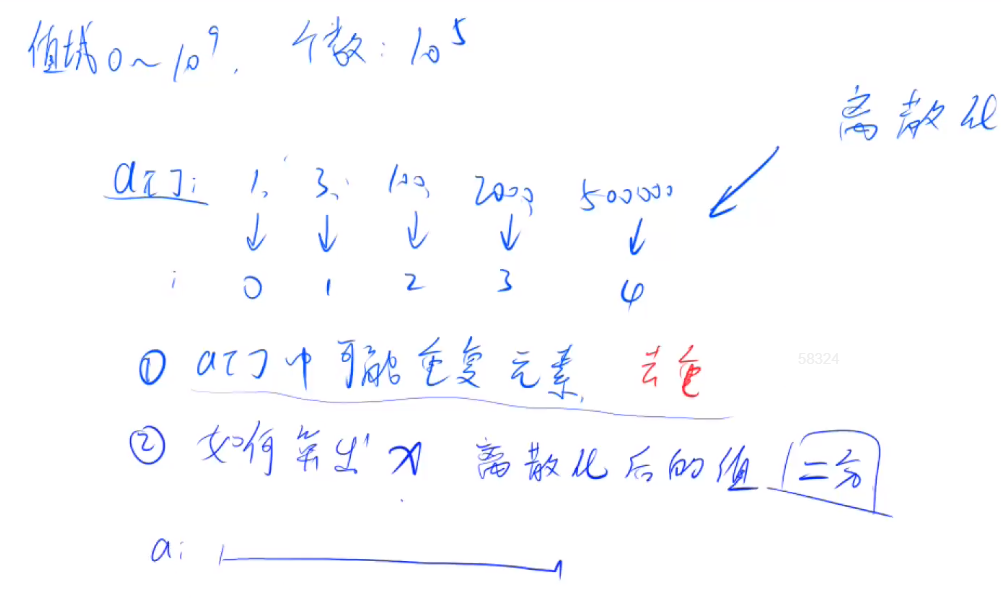 值域0~10⁹, 个数: 10⁵
离散化
a[]: 1, 3, 100, 2000, 500000
i 0 1 2 3 4
① a[]中可能重复元素, 去重
58324
② 如何算出x 离散化后的值 二分
a: